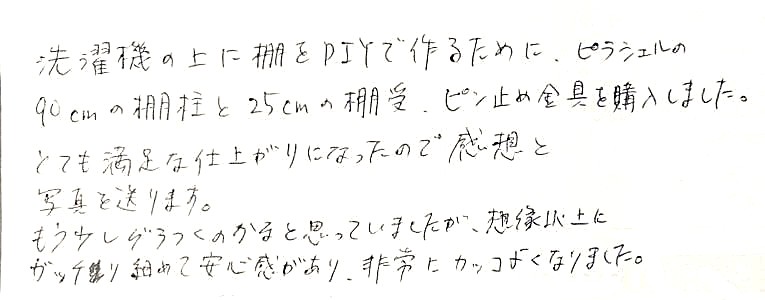 洗濯機の上に棚をDIYで作るために、ピラシェルの
90cmの棚柱と25cmの棚受、ピン止め金具を購入しました。
とても満足な仕上がりになったので感想と
写真を送ります。
もう少しグラつくのかなと思っていましたが、想像以上に
ガッチリ組めて安心感があり、非常にカッコよくなりました。